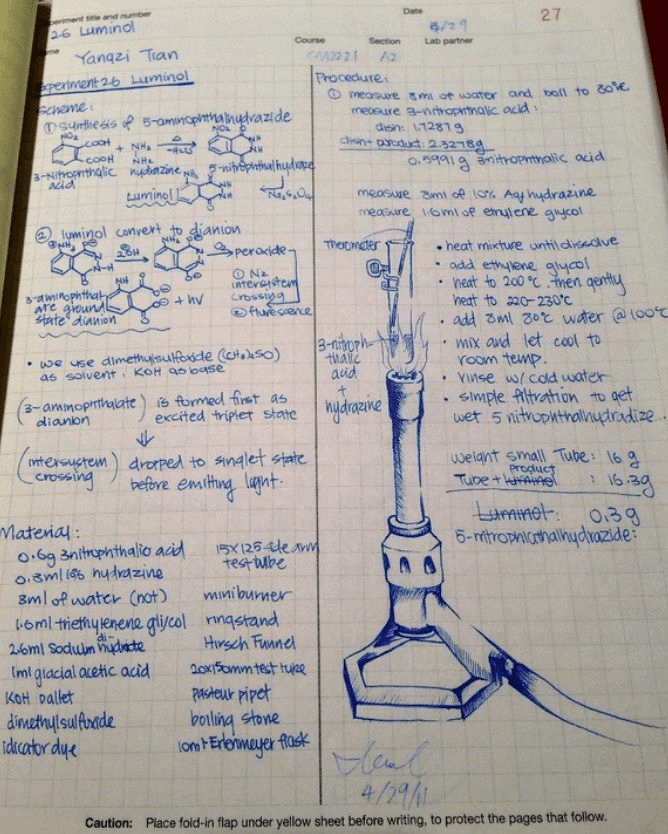 Experiment title and number
26 Luminol
Date
4/29
27
Name
Yangzi Tian
Course
Section
A2
Lab partner
Experiment 26 Luminol
Scheme:
① synthesis of 5-aminophthalhydrazide
NO2
COOH
COOH
+ NH2
NH2
Δ
-H2O
NO2
NH
NH
3-Nitrophthalic acid
hydrazine
5-nitrophthalhydraze
Luminol
NH2
NH
NH
Na2S2O4
② luminol convert to dianion
2OH
NH2
O2
peroxide
① N2
intersystem
crossing
② flurescence
3-aminophthal
ate ground
state dianion
+ hv
• we use dimethylsulfoxide (CH3)2SO)
as solvent, KOH as base
(3-aminophthalate dianion) is formed first as
excited triplet state
(intersystem crossing) dropped to singlet state
before emitting light.
Material:
0.6g 3nitrophthalic acid
0.8ml 10% hydrazine
8ml of water (hot)
1.6ml triethylenene glycol
2.6ml Sodium di-
1ml glacial acetic acid
KOH pallet
dimethylsulfoxide
idicator dye
15x125 side arm
test tube
miniburner
ringstand
Hirsch Funnel
20x150mm test tube
pasteur pipet
boiling stone
10ml Erlenmeyer flask
Procedure:
① measure 8ml of water and boil to 80°C
measure 3-nitrophthalic acid:
dish: 1.7287g
dish+product: 2.3278g
0.5991g 3nitrophthalic acid
measure 8ml of 10% Aq hydrazine
measure 1.6ml of ethylene glycol
Thermometer
3-nitroph-
thalic
acid
+
hydrazine
• heat mixture until dissolve
• add ethylene glycol
• heat to 200°C, then gently
heat to 220-230°C
• add 8ml 80°C water @100°C
• mix and let cool to
room temp.
• rinse w/ cold water
• simple filtration to get
wet 5 nitrophthalhydradize.
weight small Tube: 16g
product
Tube + luminol : 16.3g
Luminol: 0.3g
5-nitrophthalhydrazide:
4/29/11
Caution: Place fold-in flap under yellow sheet before writing, to protect the pages that follow.